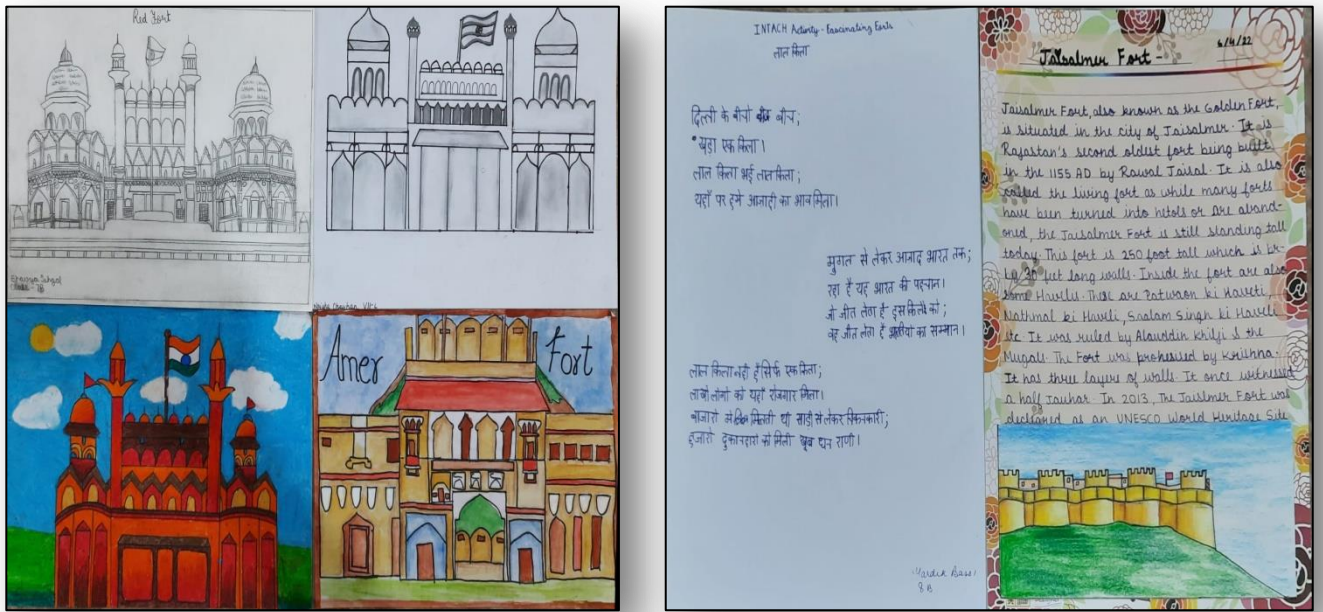 Red Fort
Class - 7B
Amer Fort
INTACH Activity - Fascinating Forts
लाल किला
दिल्ली के बीचो बीच;
खड़ा एक किला।
लाल किला भई लाल किला;
यहाँ पर हमे आजादी का भाव मिला।
मुगल से लेकर आजाद भारत तक;
रहा है यह भारत की पहचान।
जो जीत लेता है इस किले को;
वह जीत लेता है का सम्मान।
लाल किला नही है सिर्फ एक किला;
लाखो लोगों को यहाँ रोजगार मिला।
बाजारो में मिलती थी साड़ी से लेकर
हजारो दुकानदारो को मिली खूब धन राशी।
8 B
Jaisalmer Fort -
6/4/22
Jaisalmer Fort, also known as the Golden Fort,
is situated in the city of Jaisalmer. It is
Rajastan's second oldest fort being built
in the 1155 AD by Rawal Jaisal. It is also
called the living fort as while many forts
have been turned into hetols or are aband-
oned, the Jaisalmer Fort is still standing tall
today. This fort is 250 foot tall which is br-
by 30 feet long walls. Inside the fort are also
some Havelis. These are Patwaon ki Haveti,
Nathmal ki Haveli, Saalam Singh ki Haveli
etc. It was ruled by Alauddin Khilji & the
Mugals. The Fort was prohesised by Krishna.
It has three layers of walls. It once witnessed
a half Jauhar. In 2013, The Jaislmer Fort was
declared as an UNESCO World Heritage Site